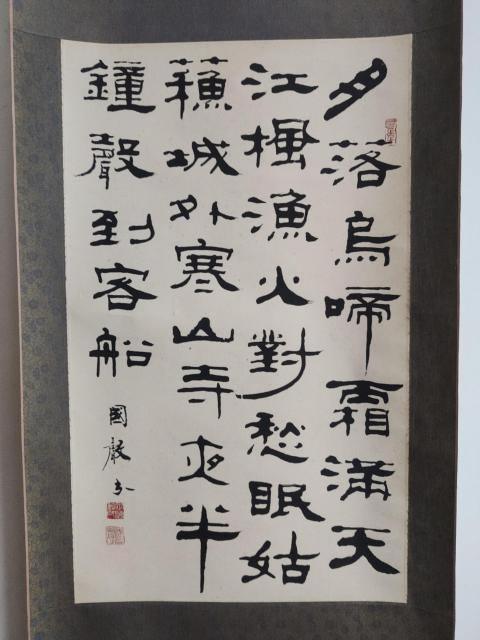 月落烏啼霜滿天
江楓漁火對愁眠姑
蘓城外寒山寺夜半
鐘聲到客船
國